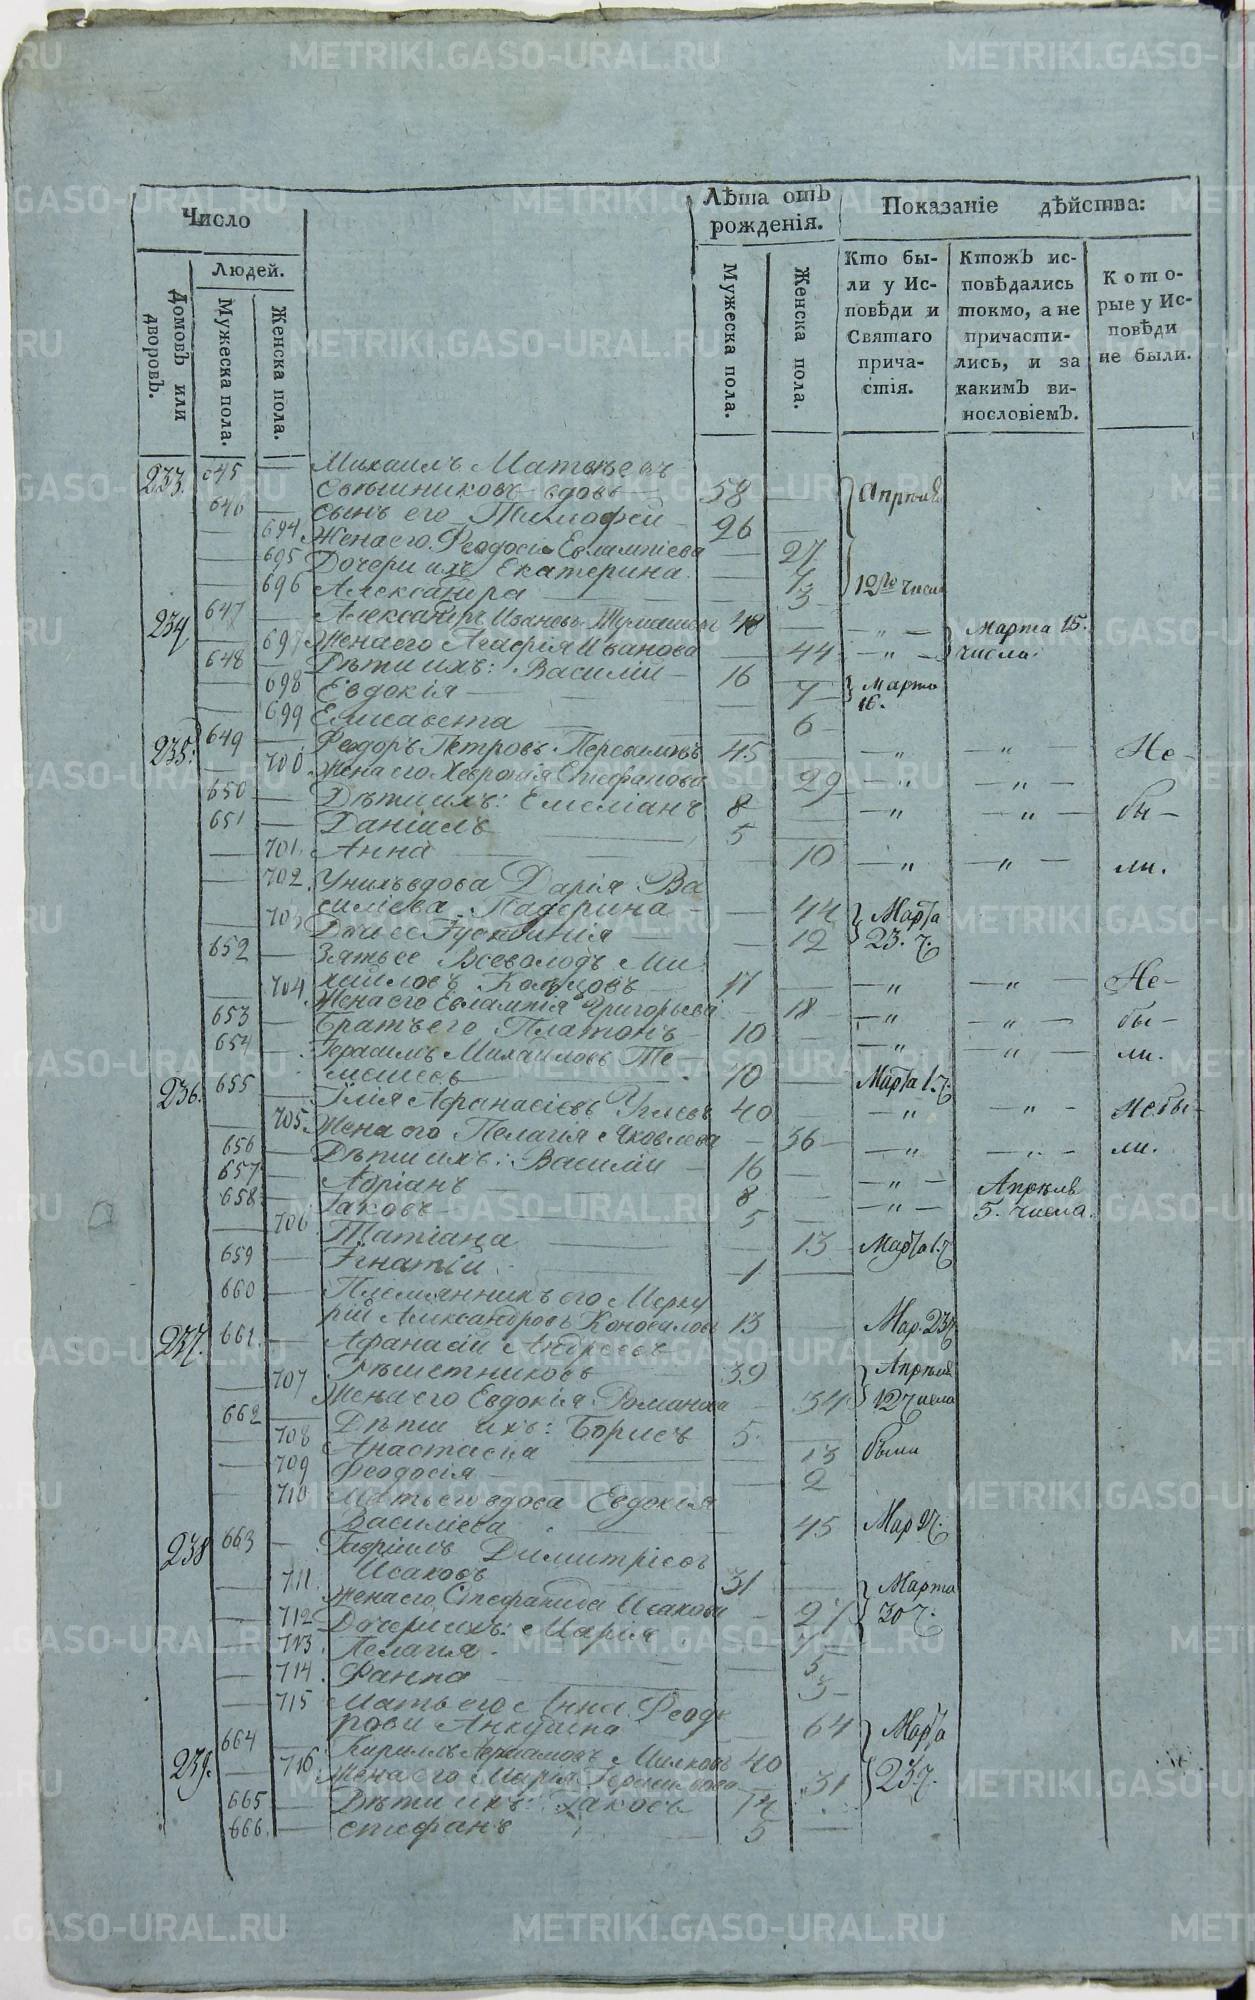 Число
Людей.
Домовъ или дворовъ.
Мужеска пола.
Женска пола.
Лѣта отъ рожденія.
Мужеска пола.
Женска пола.
Показаніе дѣйства:
Кто бы-
ли у Ис-
повѣди и
Святаго
прича-
стія.
Ктожъ ис-
повѣдались
токмо, а не
причасти-
лись, и за
какимъ ви-
нословіемъ.
Кото-
рые у Ис-
повѣди
не были.
233. 645 — Михаилъ Матвѣевъ
вдовъ — 58 — Апрѣля
646 — сынъ его Тимофей — 26 —
— 694 Жена его Феодосія Евлампіева — 27
— 695 Дочери ихъ Екатерина — 7
— 696 Александра — 3 12го числа
234 647 — Александръ Ивановъ 42 — „ — Марта 15.
— 697 Жена его Агафія Иванова — 44 — „ — числа.
648 — Дѣти ихъ: Василій — 16 —
— 698 Евдокія — — 7 Марта 16.
— 699 Елисавета — — 6 —
235. 649 — Феодоръ Петровъ 45 — „ — „ — Не-
— 700 Жена его Хевронія Стефанова — 29 — „ — „ —
650 — Дѣти ихъ: Емеліанъ 8 — „ — „ — бы-
651 — Даніилъ — 5 —
— 701. Анна — — 10 — „ — „ — ли.
— 702. У нихъ вдова Дарія Ва
силіева Падерина — — 44 Марта
— 703 Дочь ее Іустинія — — 12 23. ч.
652 — Зять ее Всеволодъ Ми
хайловъ 17 — „ — „ — Не-
— 704 Жена его Евлампія Григорьева — 18 — „ — „ — бы-
653 — Братъ его Платонъ — 10 — „ — „ — ли.
654 — Герасимъ Михайловъ Те-
10 — Марта 1. ч.
236. 655 — Илія Афанасіевъ Углевъ 40 — „ — „ — Не бы-
— 705. Жена его Пелагія Яковлева — 36 — „ — „ — ли.
656 — Дѣти ихъ: Василій — 16 — „ — Апрѣля
657 — Адріанъ — 8 — „ — 5. числа.
658 — Іаковъ — 5 —
— 706 Татіана — — 13 Марта 1. ч
659 — Игнатій — 1 —
660 — Племянникъ его Мерку
рій Александровъ Коноваловъ 13 — Мар. 23 ч
237. 661. — Афанасій Андреевъ
Рѣшетниковъ 39 — Апрѣля
— 707 Жена его Евдокія Романова — 34 12 числа
662 — Дѣти ихъ: Борисъ 5 —
— 708 Анастасія — — 13 были
— 709 Феодосія — — 2
— 710 Мать его вдова Евдокія
Василіева — 45 Мар 9 ч.
238 663 — Гавріилъ Димитріевъ
Исаковъ 31 — Марта
— 711. Жена его Стефанида Исакова — 27 30 ч.
— 712 Дочери ихъ: Марія — 7 —
— 713 Пелагія. — 5
— 714. Фаина — — 3 —
— 715 Мать его Анна Феодо
рова — 64 Марта
239. 664 — Кириллъ 40
— 716 Жена его Марія — 31 23 ч.
665 — Дѣти ихъ: Іаковъ 14
666. — Стефанъ 5 —
METRIKI.GASO-URAL.RU